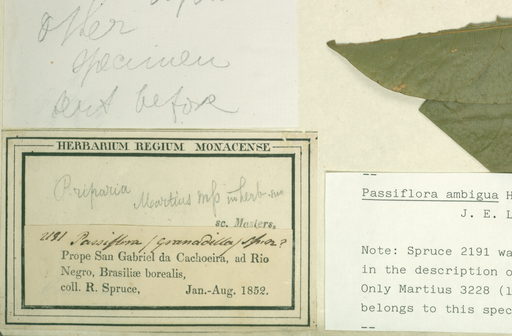 other
specimen
sent before
HERBARIUM REGIUM MONACENSE
P. riparia Martius mss in herb. suo
sc. Masters.
2191 Passiflora (Granadilla) spec?
Prope San Gabriel da Cachoeira, ad Rio
Negro, Brasiliæ borealis,
coll. R. Spruce, Jan.-Aug. 1852.
Passiflora ambigua H
J. E. L
Note: Spruce 2191 wa
in the description o
Only Martius 3228 (1
belongs to this spec